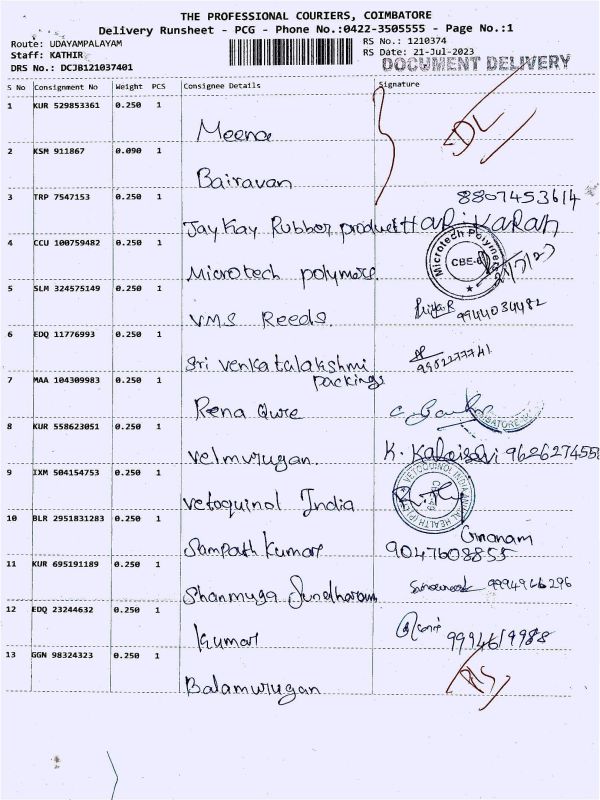 THE PROFESSIONAL COURIERS, COIMBATORE
Delivery Runsheet - PCG - Phone No.:0422-3505555 - Page No.:1
Route: UDAYAMPALAYAM
RS No.: 1210374
Staff: KATHIR
RS Date: 21-Jul-2023
DRS No.: DCJB121037401
DOCUMENT DELIVERY
S No Consignment No Weight PCS Consignee Details Signature
1 KUR 529853361 0.250 1
Meena
DL
2 KSM 911867 0.090 1
Bairavan
3 TRP 7547153 0.250 1
8807453614
Jay Kay Rubber product Hariharan
4 CCU 100759482 0.250 1
Microtech polymers
Microtech Polymers
CBE-6
5 SLM 324575149 0.250 1
VMS Reeds.
9944034482
6 EDQ 11776993 0.250 1
Sri venkatalakshmi
packings
9952277741
7 MAA 104309983 0.250 1
Rena Qure
8 KUR 558623051 0.250 1
velmurugan.
K. Kalaiselvi 962627455
9 IXM 504154753 0.250 1
vetoquinol India
VETOQUINOL INDIA ANIMAL HEALTH (P) LTD
10 BLR 2951831283 0.250 1
Sampath Kumar
Gnanam
9047608855
11 KUR 695191189 0.250 1
Shanmuga Sundharam
9994966296
12 EDQ 23244632 0.250 1
Kumar
9994619988
13 GGN 98324323 0.250 1
Balamurugan